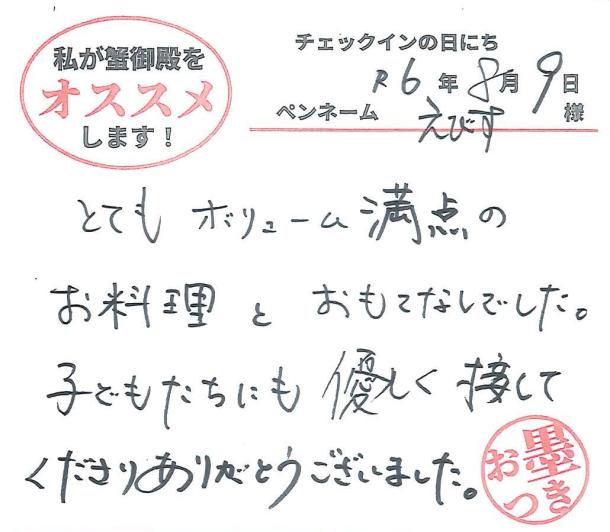 私が蟹御殿を
オススメ
します！
チェックインの日にち
R6年8月9日
ペンネーム えびす 様
とてもボリューム満点の
お料理とおもてなしでした。
子どもたちにも優しく接して
くださりありがとうございました。
お墨つき